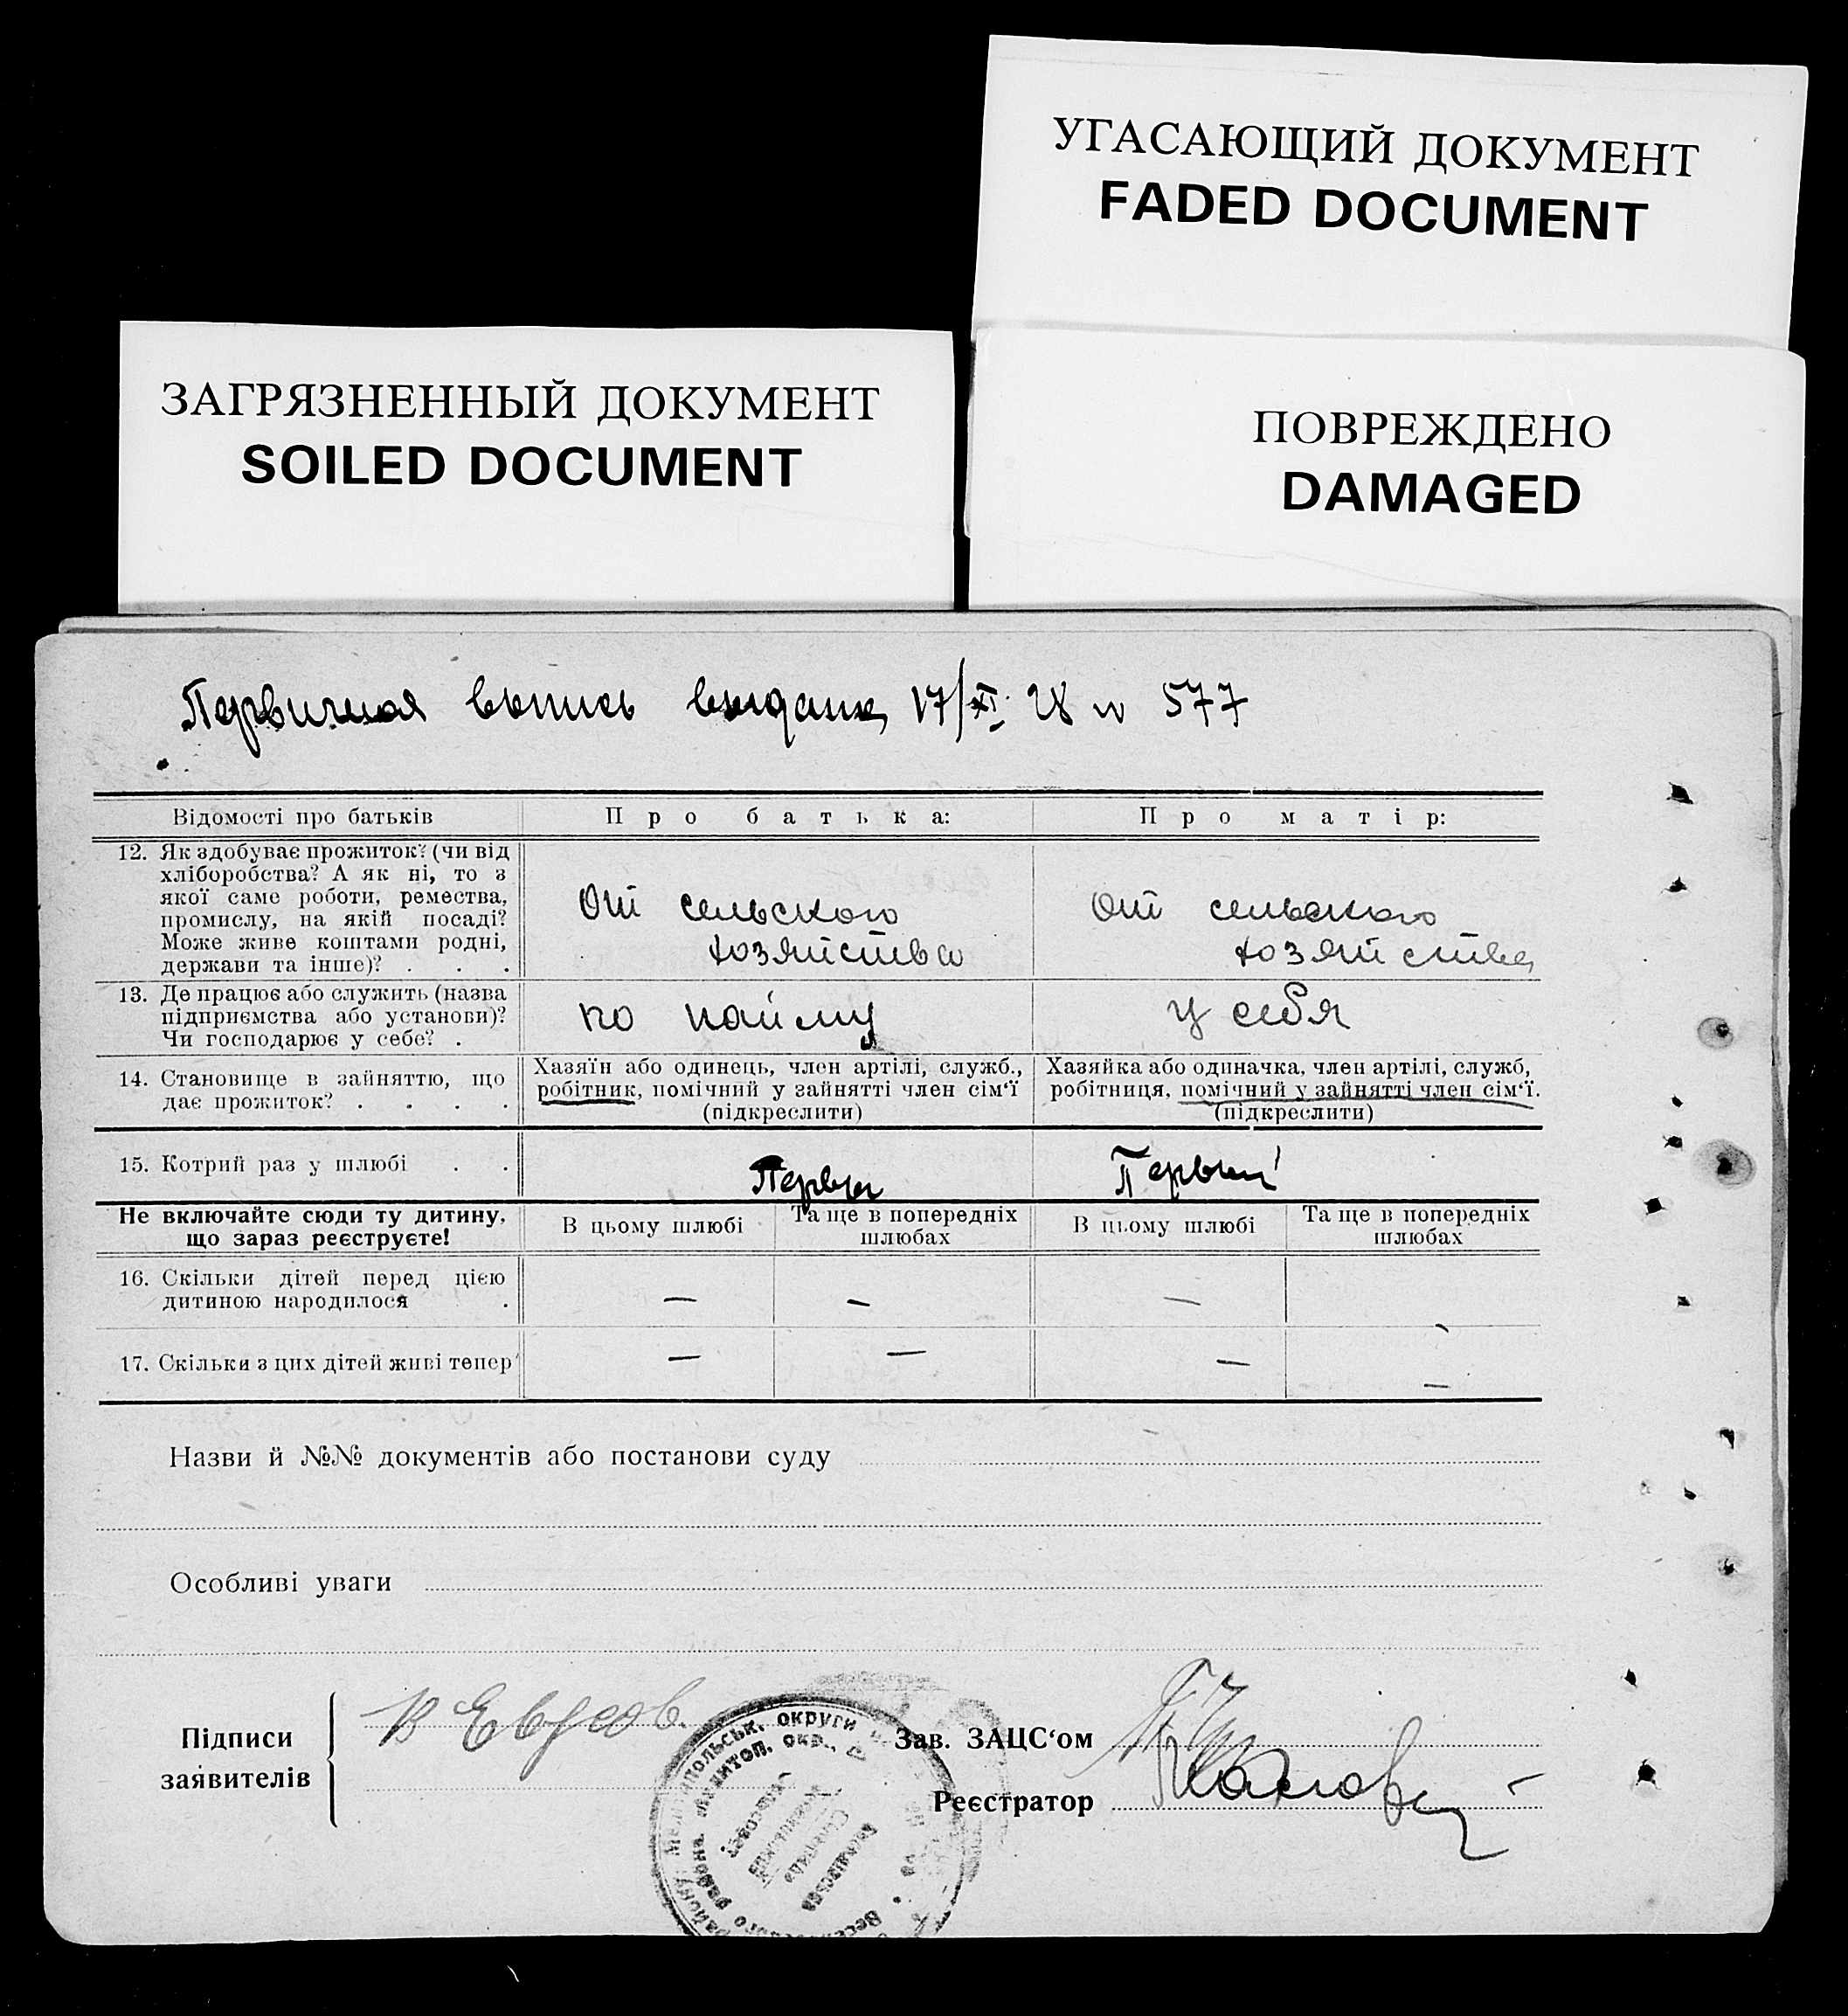 УГАСАЮЩИЙ ДОКУМЕНТ
FADED DOCUMENT
ЗАГРЯЗНЕННЫЙ ДОКУМЕНТ
SOILED DOCUMENT
ПОВРЕЖДЕНО
DAMAGED
Первичная выпись выдана 17/XI 28 № 577
Відомості про батьків
Про батька:
Про матір:
12. Як здобуває прожиток? (чи від
хліборобства? А як ні, то з
якої саме роботи, ремества,
промислу, на якій посаді?
Може живе коштами родні,
держави та інше)? . . .
От сельского
хозяйства
От сельского
хозяйства
13. Де працює або служить (назва
підприємства або установи)?
Чи господарює у себе? .
по найму
у себя
14. Становище в зайняттю, що
дає прожиток? . . . .
Хазяїн або одинець, член артілі, служб.,
робітник, помічний у зайнятті член сім'ї
(підкреслити)
Хазяйка або одиначка, член артілі, служб,
робітниця, помічний у зайнятті член сім'ї.
(підкреслити)
15. Котрий раз у шлюбі . .
Первый
Первый
Не включайте сюди ту дитину,
що зараз реєструєте!
В цьому шлюбі
Та ще в попередніх
шлюбах
В цьому шлюбі
Та ще в попередніх
шлюбах
16. Скільки дітей перед цією
дитиною народилося .
— — —
17. Скільки з цих дітей живі тепер
— — — —
Назви й №№ документів або постанови суду
Особливі уваги
Підписи
заявителів
Зав. ЗАЦС'ом
Реєстратор
округи